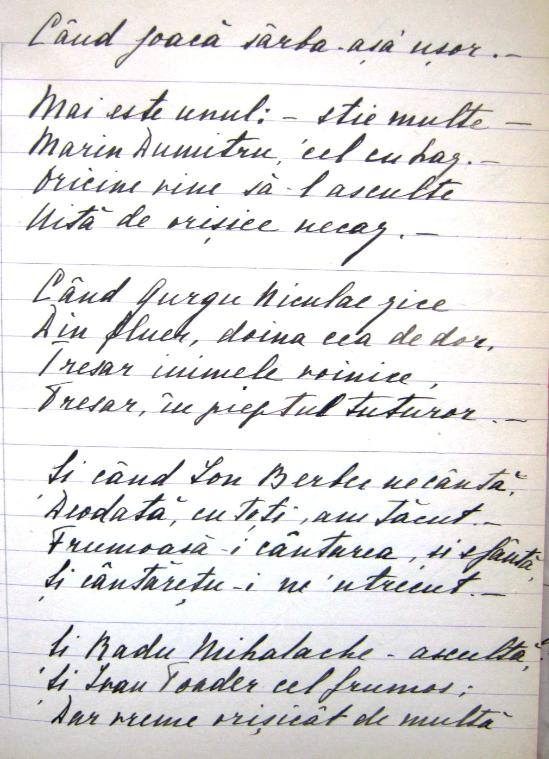 Când joacă sârba-așa ușor. —
Mai este unul: — stie multe —
Marin Dumitru, cel cu haz. —
Oricine vine să-l asculte
Uită de orișice necaz. —
Când Gurgu Niculae zice
Din fluer, doina cea de dor,
Tresar inimele voinice,
Tresar, în pieptul tuturor. —
Si când Ion Berbec ne cântă,
Deodată, cu toti, am tăcut. —
Frumoasă-i cântarea, si sfântă,
Și cântărețu-i ne'ntrecut. —
Si Radu Mihalache - ascultă,
Si Ivan Toader cel frumos;
Dar vreme orișicât de multă